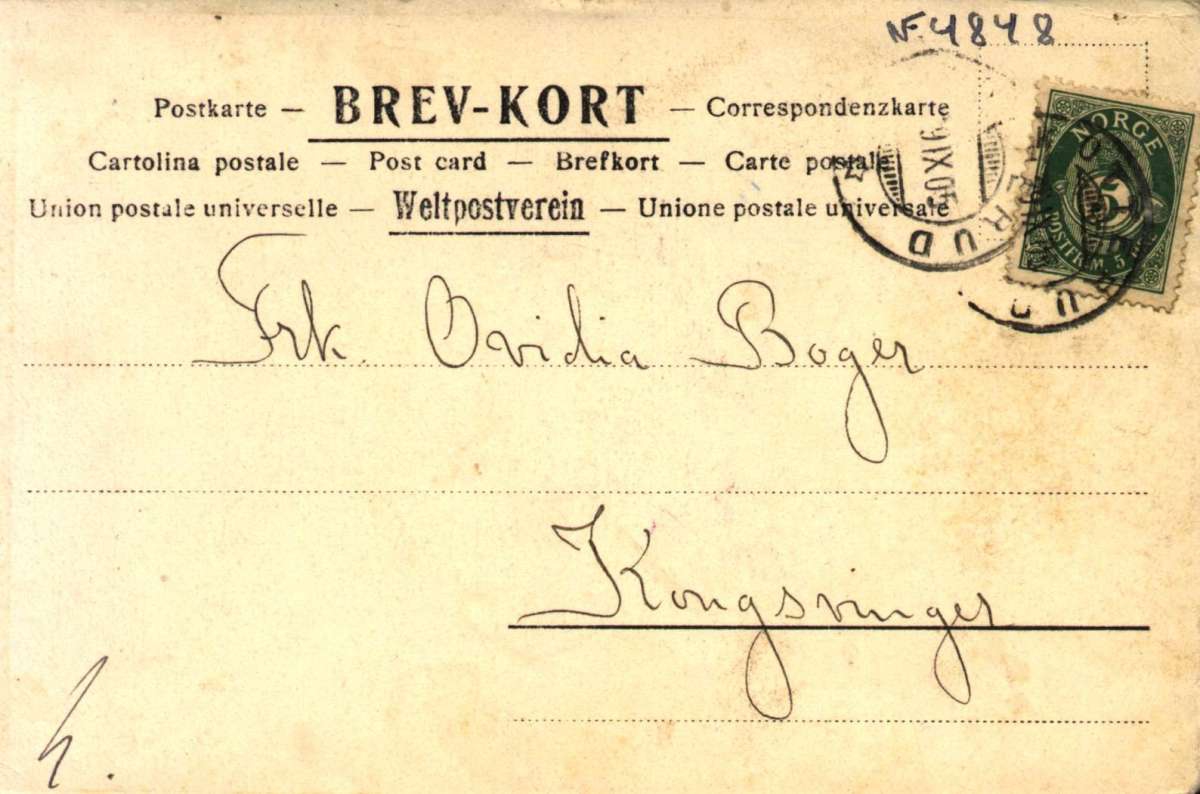 N-4848
Postkarte — BREV-KORT — Correspondenzkarte
Cartolina postale — Post card — Brefkort — Carte postale
Union postale universelle — Weltpostverein — Unione postale universale
NORGE
5
POSTFRIM. 5
IX 05
RUD
Frk. Ovidia Boger
Kongsvinger
h.